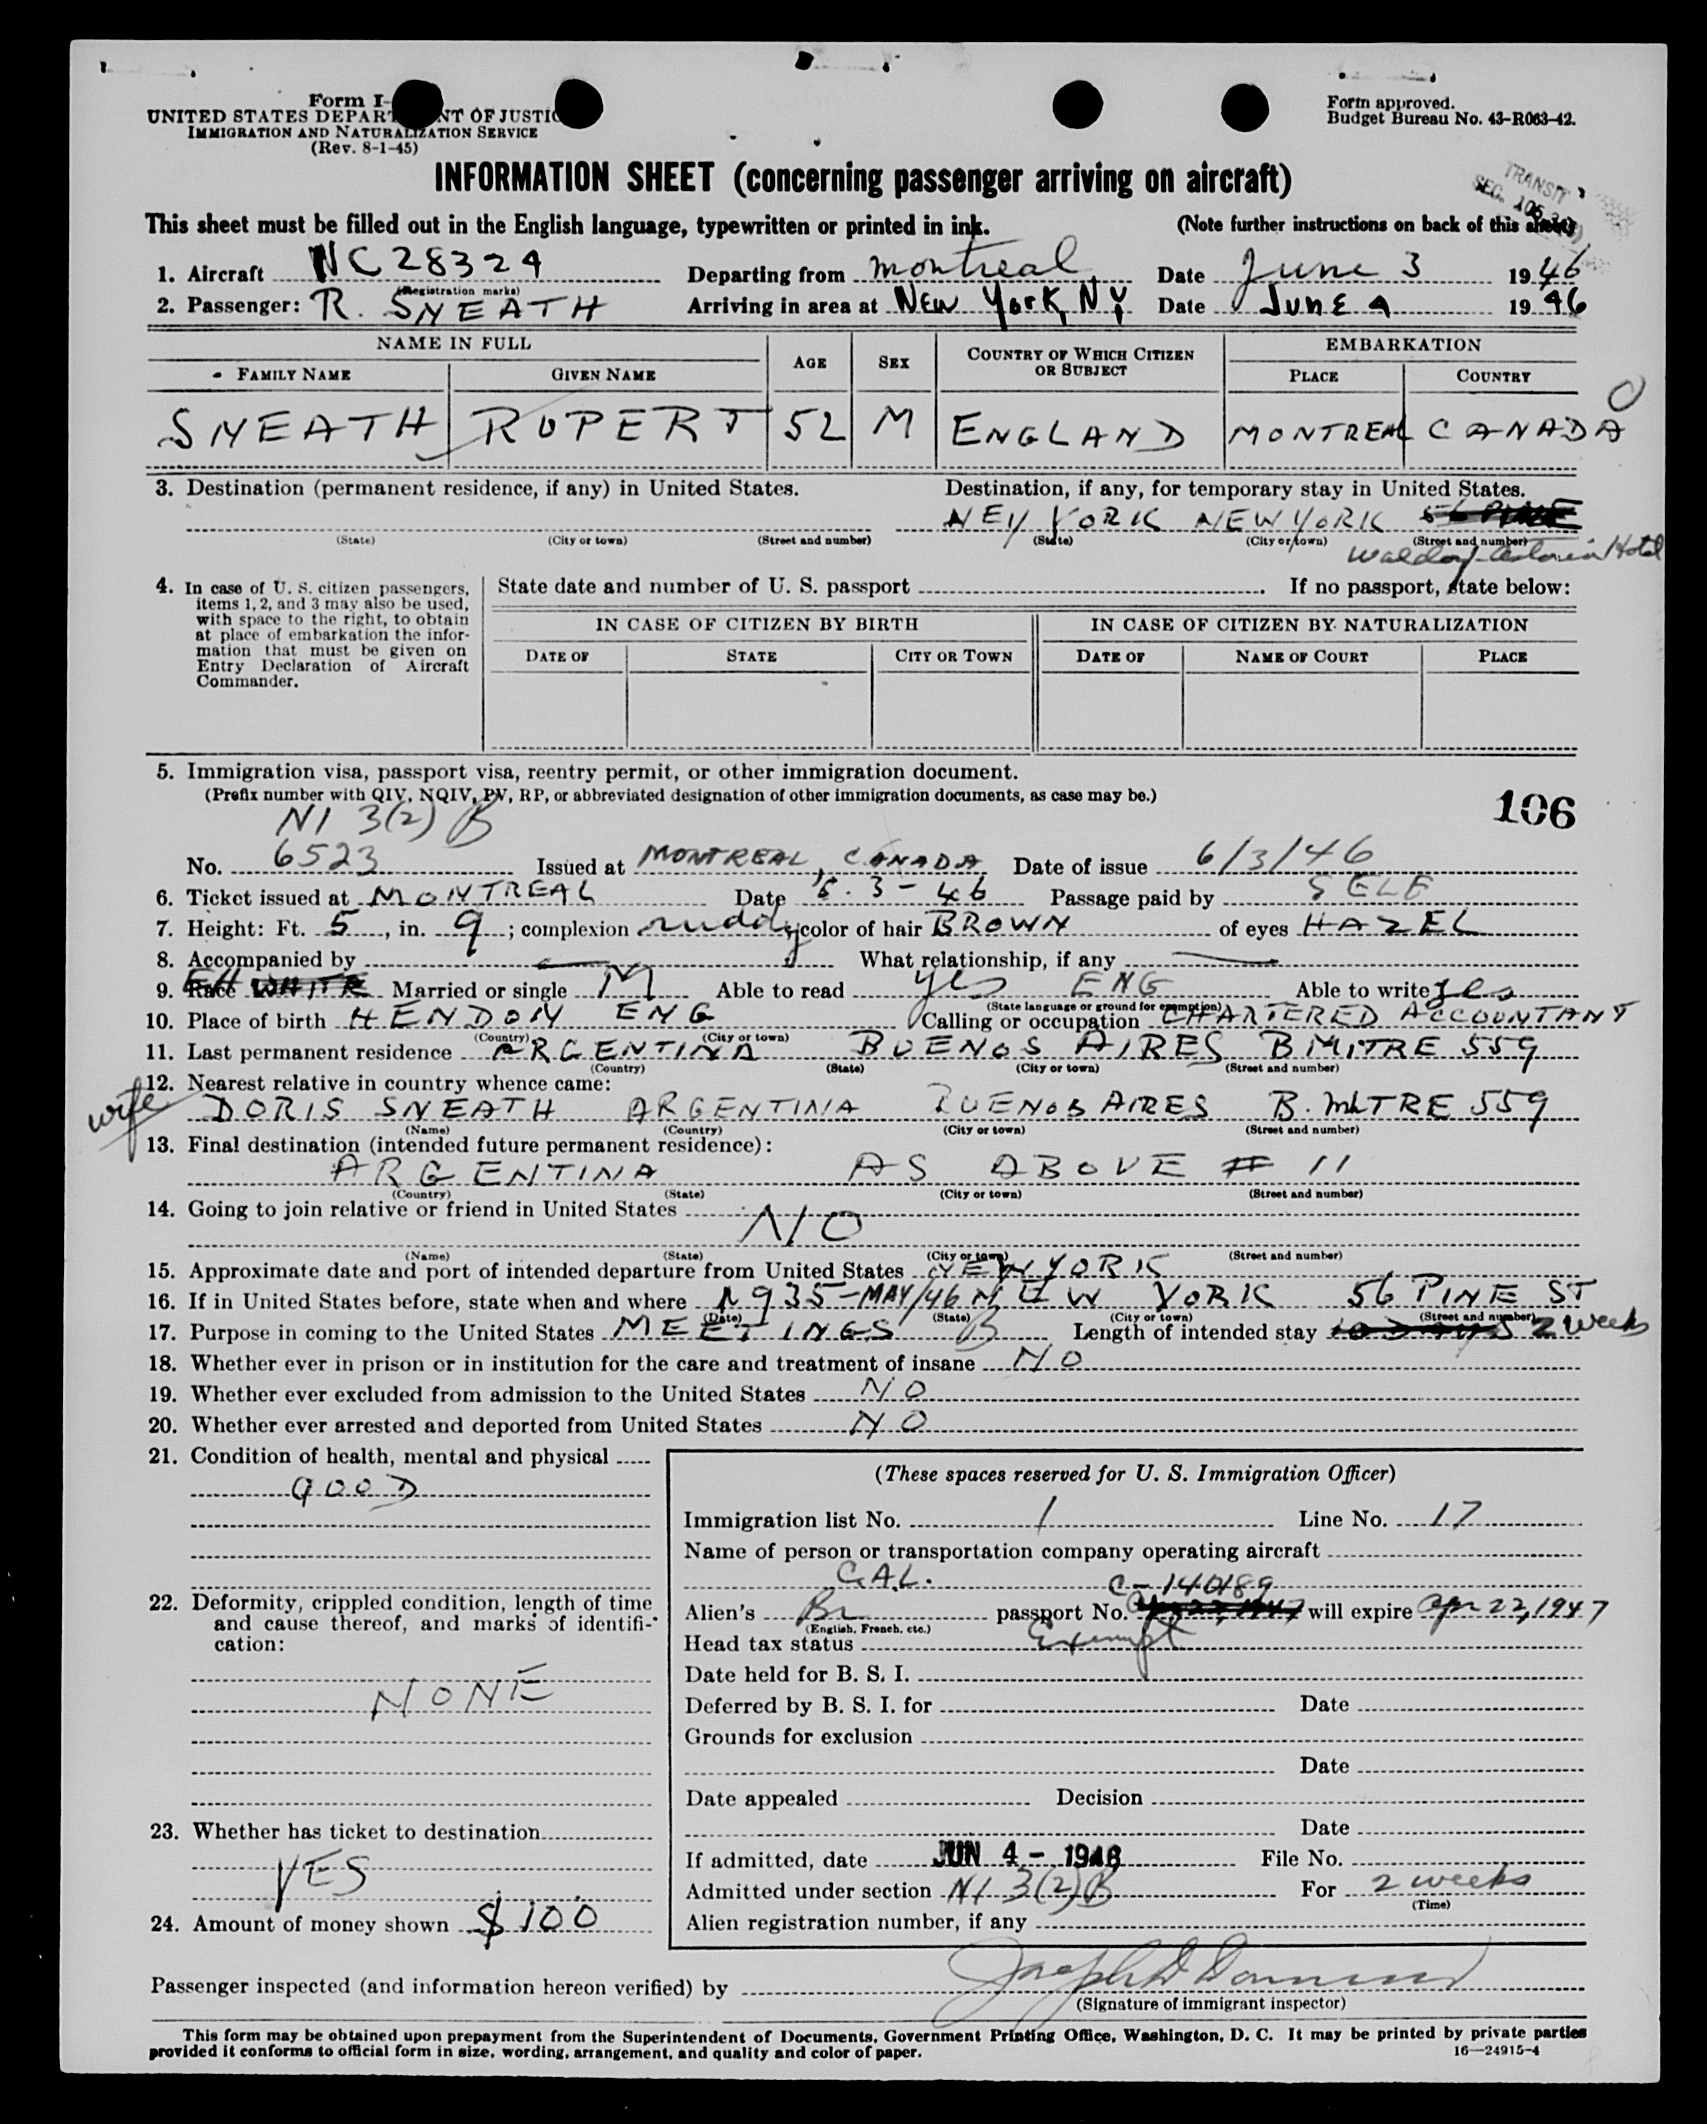 Form I-
UNITED STATES DEPARTMENT OF JUSTICE
IMMIGRATION AND NATURALIZATION SERVICE
(Rev. 8-1-45)
Form approved.
Budget Bureau No. 43-R063-42.
INFORMATION SHEET (concerning passenger arriving on aircraft)
TRANSIT
SEC. 105.3
This sheet must be filled out in the English language, typewritten or printed in ink. (Note further instructions on back of this sheet)
1. Aircraft NC28324 Departing from Montreal Date June 3 1946
(Registration marks)
2. Passenger: R. SNEATH Arriving in area at NEW YORK, NY Date JUNE 4 1946
NAME IN FULL AGE SEX COUNTRY OF WHICH CITIZEN OR SUBJECT EMBARKATION
FAMILY NAME GIVEN NAME PLACE COUNTRY
SNEATH RUPERT 52 M ENGLAND MONTREAL CANADA
3. Destination (permanent residence, if any) in United States. Destination, if any, for temporary stay in United States.
NEW YORK NEW YORK 56 PINE
(State) (City or town) (Street and number) (State) (City or town) (Street and number)
Waldorf-Astoria Hotel
4. In case of U. S. citizen passengers, items 1, 2, and 3 may also be used, with space to the right, to obtain at place of embarkation the information that must be given on Entry Declaration of Aircraft Commander.
State date and number of U. S. passport . If no passport, state below:
IN CASE OF CITIZEN BY BIRTH IN CASE OF CITIZEN BY NATURALIZATION
DATE OF STATE CITY OR TOWN DATE OF NAME OF COURT PLACE
5. Immigration visa, passport visa, reentry permit, or other immigration document.
(Prefix number with QIV, NQIV, PV, RP, or abbreviated designation of other immigration documents, as case may be.)
106
NI 3(2) B
No. 6523 Issued at MONTREAL, CANADA Date of issue 6/3/46
6. Ticket issued at MONTREAL Date 6.3-46 Passage paid by SELF
7. Height: Ft. 5, in. 9; complexion ruddy; color of hair BROWN of eyes HAZEL
8. Accompanied by — What relationship, if any —
9. Race WHITE Married or single M Able to read yes ENG Able to write yes
(State language or ground for exemption)
10. Place of birth HENDON ENG Calling or occupation CHARTERED ACCOUNTANT
(Country) (City or town)
11. Last permanent residence ARGENTINA BUENOS AIRES B MITRE 559
(Country) (State) (City or town) (Street and number)
12. Nearest relative in country whence came:
wife DORIS SNEATH ARGENTINA BUENOS AIRES B. MITRE 559
(Name) (Country) (City or town) (Street and number)
13. Final destination (intended future permanent residence):
ARGENTINA AS ABOVE # 11
(Country) (State) (City or town) (Street and number)
14. Going to join relative or friend in United States NO
(Name) (State) (City or town) (Street and number)
15. Approximate date and port of intended departure from United States NEW YORK
16. If in United States before, state when and where 1935-MAY/46 NEW YORK 56 PINE ST
(Date) (State) (City or town) (Street and number)
17. Purpose in coming to the United States MEETINGS B Length of intended stay 10 days 2 weeks
18. Whether ever in prison or in institution for the care and treatment of insane NO
19. Whether ever excluded from admission to the United States NO
20. Whether ever arrested and deported from United States NO
21. Condition of health, mental and physical
GOOD
22. Deformity, crippled condition, length of time and cause thereof, and marks of identification:
NONE
23. Whether has ticket to destination
YES
24. Amount of money shown $100
(These spaces reserved for U. S. Immigration Officer)
Immigration list No. 1 Line No. 17
Name of person or transportation company operating aircraft
C.A.L. C-140189
Alien's Br passport No. will expire Apr 22, 1947
(English, French, etc.)
Head tax status Exempt
Date held for B. S. I.
Deferred by B. S. I. for Date
Grounds for exclusion
Date
Date appealed Decision
Date
If admitted, date JUN 4 - 1946 File No.
Admitted under section NI 3(2)B For 2 weeks
(Time)
Alien registration number, if any
Passenger inspected (and information hereon verified) by
(Signature of immigrant inspector)
This form may be obtained upon prepayment from the Superintendent of Documents, Government Printing Office, Washington, D. C. It may be printed by private parties
provided it conforms to official form in size, wording, arrangement, and quality and color of paper. 16—24915-4